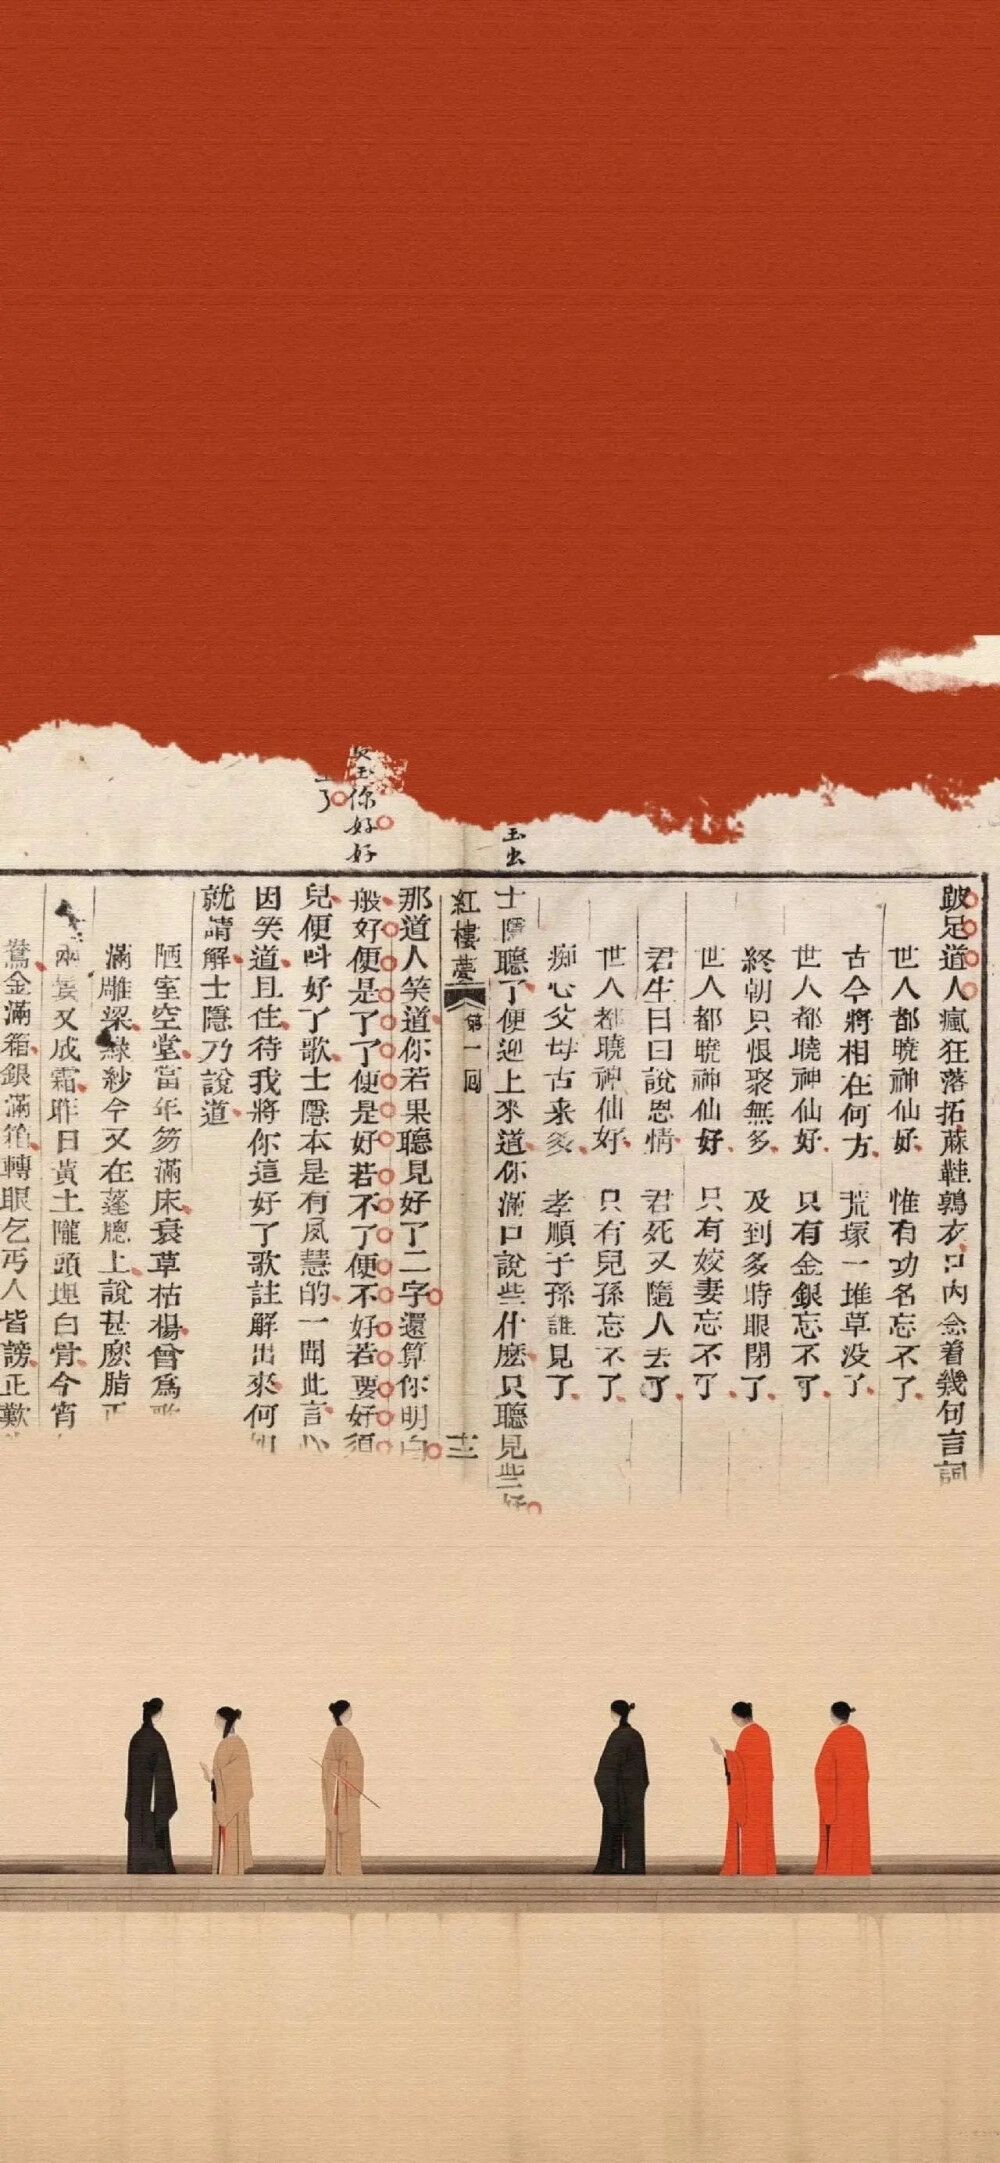 跛足道人瘋狂落拓蔴鞋鶉衣口內念着幾句言詞
世人都曉神仙好 惟有功名忘不了
古今將相在何方 荒塚一堆草没了
世人都曉神仙好 只有金銀忘不了
終朝只恨聚無多 及到多時眼閉了
世人都曉神仙好 只有姣妻忘不了
君生日日說恩情 君死又隨人去了
世人都曉神仙好 只有兒孫忘不了
痴心父母古來多 孝順子孫誰見了
玉出
士隱聽了便迎上來道你滿口說些什麽只聽見些好
紅樓夢 第一回 十三
那道人笑道你若果聽見好了二字還算你明白
玉你好好
般好便是了了便是好若不了便不好若要好須
了
兒便呌好了歌士隱本是有夙慧的一聞此言心
因笑道且住待我將你這好了歌註解出來何如
就請解士隱乃說道
陋室空堂當年笏滿床衰草枯楊曾爲歌
滿雕梁綠紗今又在蓬牕上說甚麽脂正
兩鬂又成霜昨日黃土隴頭埋白骨今宵
鴦金滿箱銀滿箱轉眼乞丐人皆謗正歎